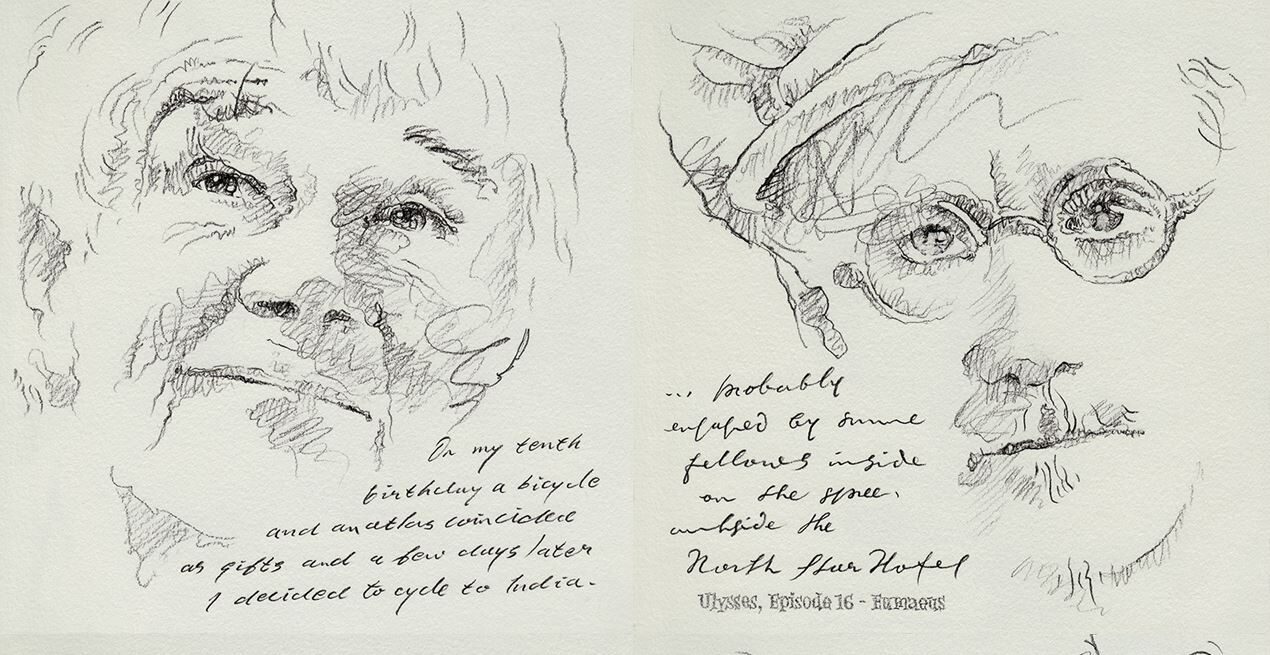 On my tenth
birthday a bicycle
and an atlas coincided
as gifts and a few days later
I decided to cycle to India.
... probably
engaged by some
fellows inside
on the spree,
outside the
North Star Hotel
Ulysses, Episode 16 - Eumaeus